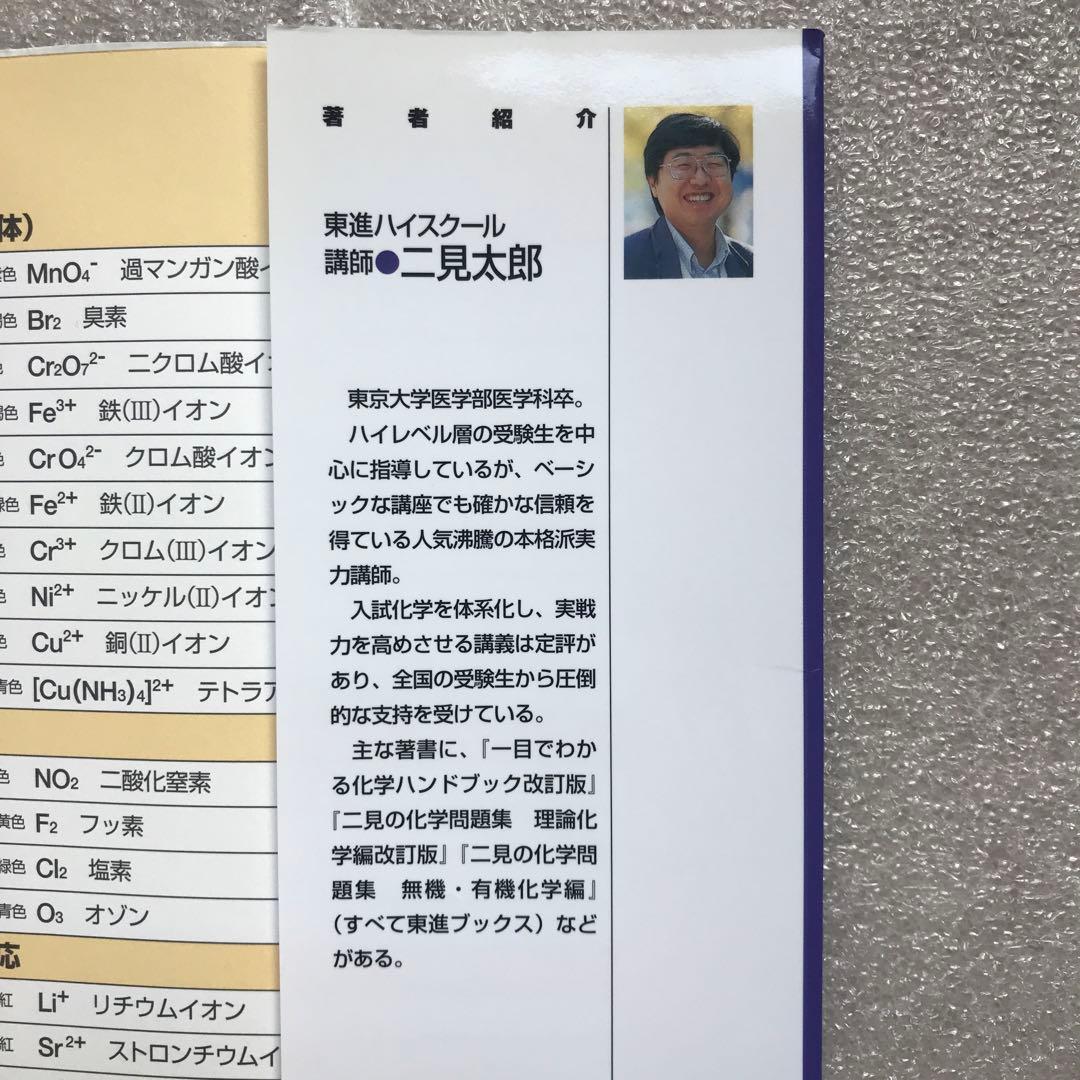 体)
色 MnO₄⁻ 過マンガン酸
色 Br₂ 臭素
Cr₂O₇²⁻ ニクロム酸イ
色 Fe³⁺ 鉄(III)イオン
CrO₄²⁻ クロム酸イオン
緑色 Fe²⁺ 鉄(II)イオン
色 Cr³⁺ クロム(III)イオン
色 Ni²⁺ ニッケル(II)イオ
色 Cu²⁺ 銅(II)イオン
青色 [Cu(NH₃)₄]²⁺ テトラア
色 NO₂ 二酸化窒素
黄色 F₂ フッ素
緑色 Cl₂ 塩素
青色 O₃ オゾン
応
紅 Li⁺ リチウムイオン
紅 Sr²⁺ ストロンチウムイ
著者紹介
東進ハイスクール
講師●二見太郎
東京大学医学部医学科卒。
ハイレベル層の受験生を中
心に指導しているが、ベーシ
ックな講座でも確かな信頼を
得ている人気沸騰の本格派実
力講師。
入試化学を体系化し、実戦
力を高めさせる講義は定評が
あり、全国の受験生から圧倒
的な支持を受けている。
主な著書に、『一目でわか
る化学ハンドブック改訂版』
『二見の化学問題集 理論化
学編改訂版』『二見の化学問
題集 無機・有機化学編』
(すべて東進ブックス)など
がある。